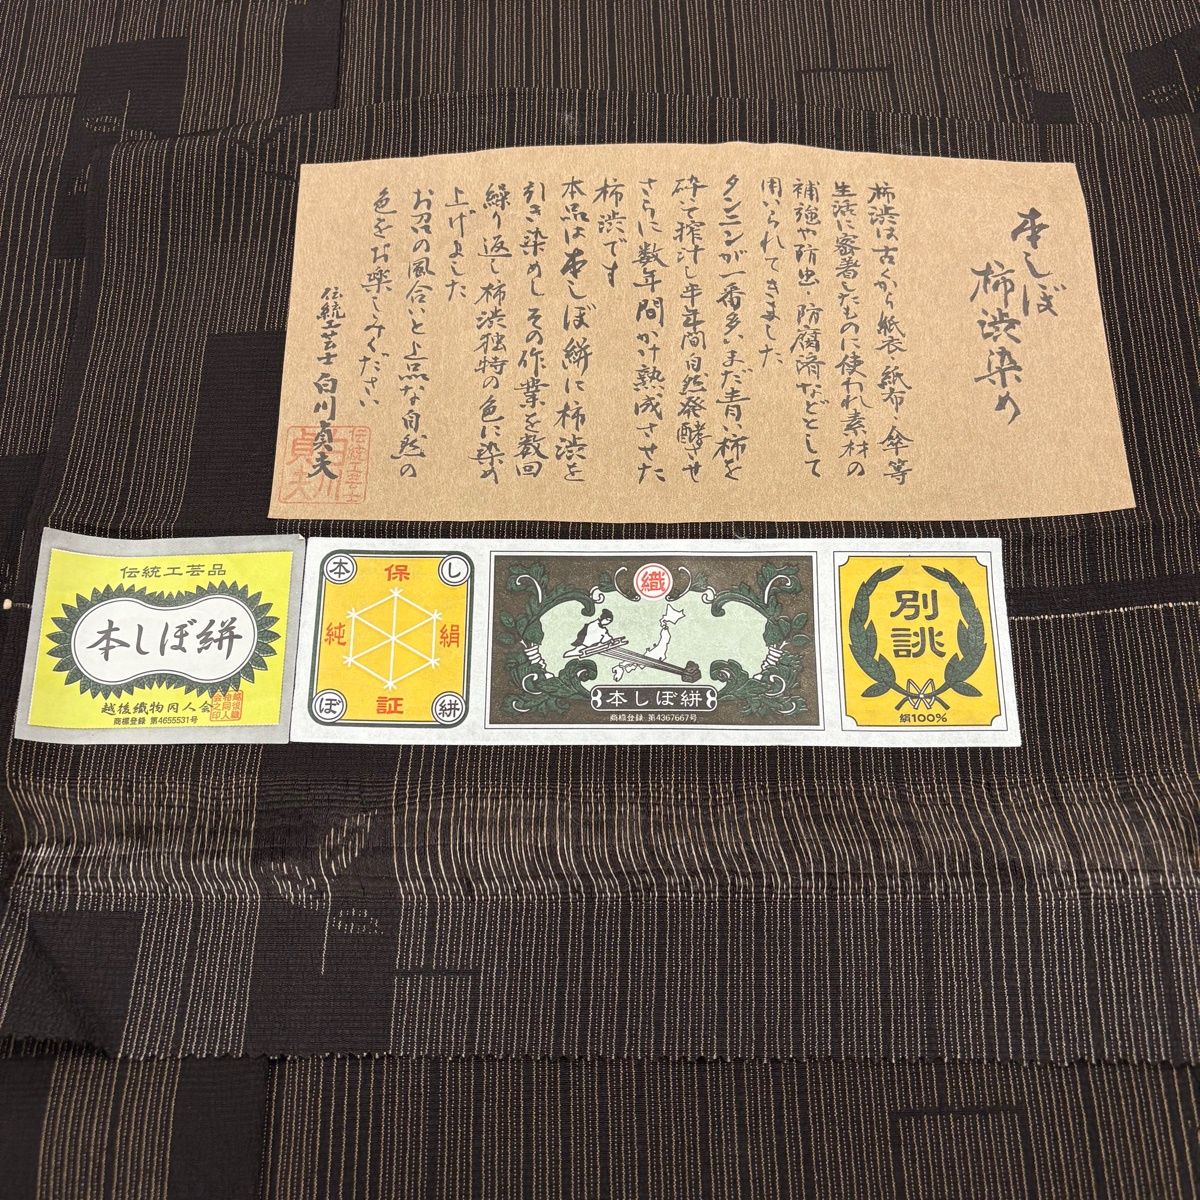 本しぼ
柿渋染め
柿渋は古くから紙衣・紙布・傘等
生活に密着したものに使われ素材の
補強や防虫・防腐済などとして
用いられてきました
タンニンが一番多いまだ青い柿を
砕いて搾汁し半年間自然発酵させ
さらに数年間かけ熟成させた
柿渋です
本品は本しぼ絣に柿渋を
引き染めしその作業を数回
繰り返し柿渋独特の色に染め
上げました
お召の風合いと上品な自然の
色をお楽しみください
伝統工芸士 白川貞夫
伝統工芸士
白川
貞夫
伝統工芸品
本しぼ絣
越後織物同人会
商標登録 第4655531号
越後織
物同人
会之印
本 保 し
純 絹
ぼ 証 絣
織
本しぼ絣
商標登録 第4367667号
別誂
絹100%